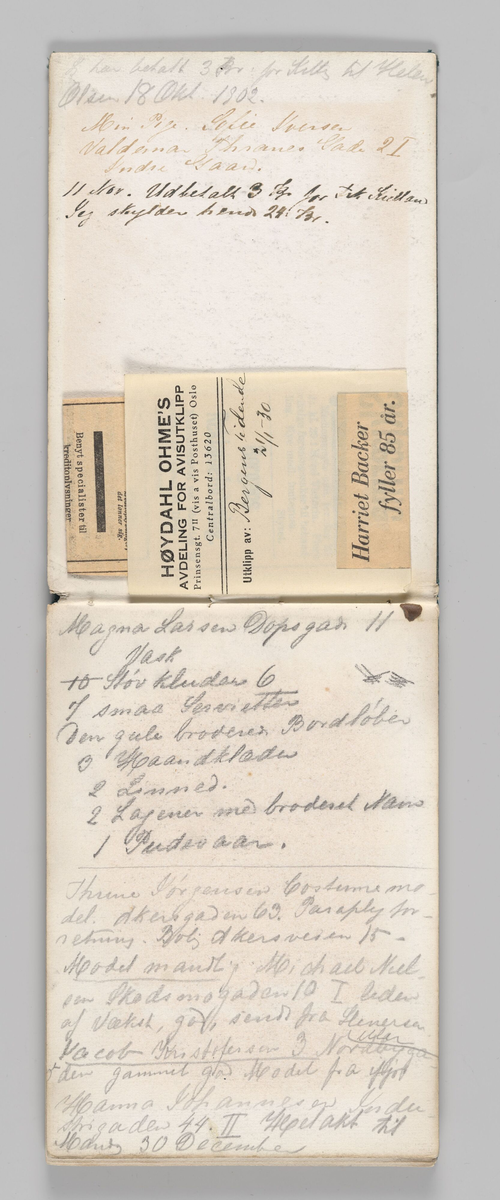 har betalt 3 Kr. for Kitty til Helen
Olsen 18 Okt. 1902.
Min Pige. Sofie Iversen
Valdemar Thranes Gade 2 I
Indre Gaard.
11 Nov. Udbetalt 3 Kr for Frk Kielland
Jeg skylder hende 24 Kr.
Benyt specialister til
HØYDAHL OHME'S
AVDELING FOR AVISUTKLIPP
Prinsensgt. 7II (vis a vis Posthuset) Oslo
Centralbord: 13620
Utklipp av: Bergens tidende
21/1-30
Harriet Backer
fyller 85 år.
Magna Larsen Dopsgade 11
Vask
10 Støvkluder 6
7 smaa Servietter
Den gule broderede Bordløber
3 Haandklæder
2 Linned.
2 Lagener med broderet Navn
1 Pudevaar.
Thrine Jørgensen Costume mo-
del. Akersgaden 63. Paraply for-
retning. Bolig Akersveien 15 -
Model mandlig Michael Niel-
sen Skedsmogaden 10 I liden
af Vækst, god, sendt fra Stenersen
Jacob Kristofersen 3
den gammel god Model fra
Hanna Johannesen Inde
44. II Modakt til
30 December